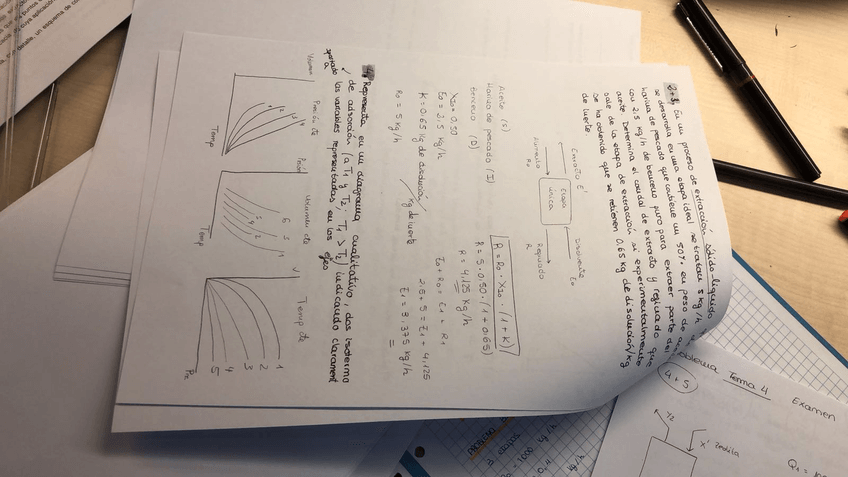 2+3, En un proceso de extracción sólido-líquido
se desarrolla en una etapa ideal se tratan 5 kg/h
harina de pescado que contiene un 50% en peso de
con 2.5 kg/h de benceno puro para extraer parte del
aceite. Determina el caudal de extracto y refinado que
sale de la etapa de extracción si experimentalmente
se ha obtenido que se retienen 0.65 kg de disolución/kg
de inerte.
Extracto E'
Disolvente E₀
Etapa
única
Alimento
R₀
Refinado
R
Aceite (S)
Harina de pescado (I)
Benceno (D)
R = R₀ · X₁₀ · (1 + K)
R = 5 · 0.50 · (1 + 0.65)
R = 4.125 kg/h
E₀ = 2.5 kg/h
K = 0.65 kg de disolución/
kg de inerte
R₀ = 5 kg/h
E₀ + R₀ = E₁ + R₁
2.5 + 5 = E₁ + 4.125
E₁ = 3.375 kg/h
Representa en un diagrama cualitativo, dos isoterma
de adsorción (a T₁ y T₂; T₁ > T₂) indicando clarament
las variables representadas en los ejes
Volumen
Presión de
Temp
1
2
3
4
Volumen de
Temp
6
5
4
3
2
1
V
Temp de
1
2
3
4
5
Problema Tema 4
Examen
4+5
Y₂
X'
PROBLEMA
3 etapas
= 1000 kg/h
kg/h